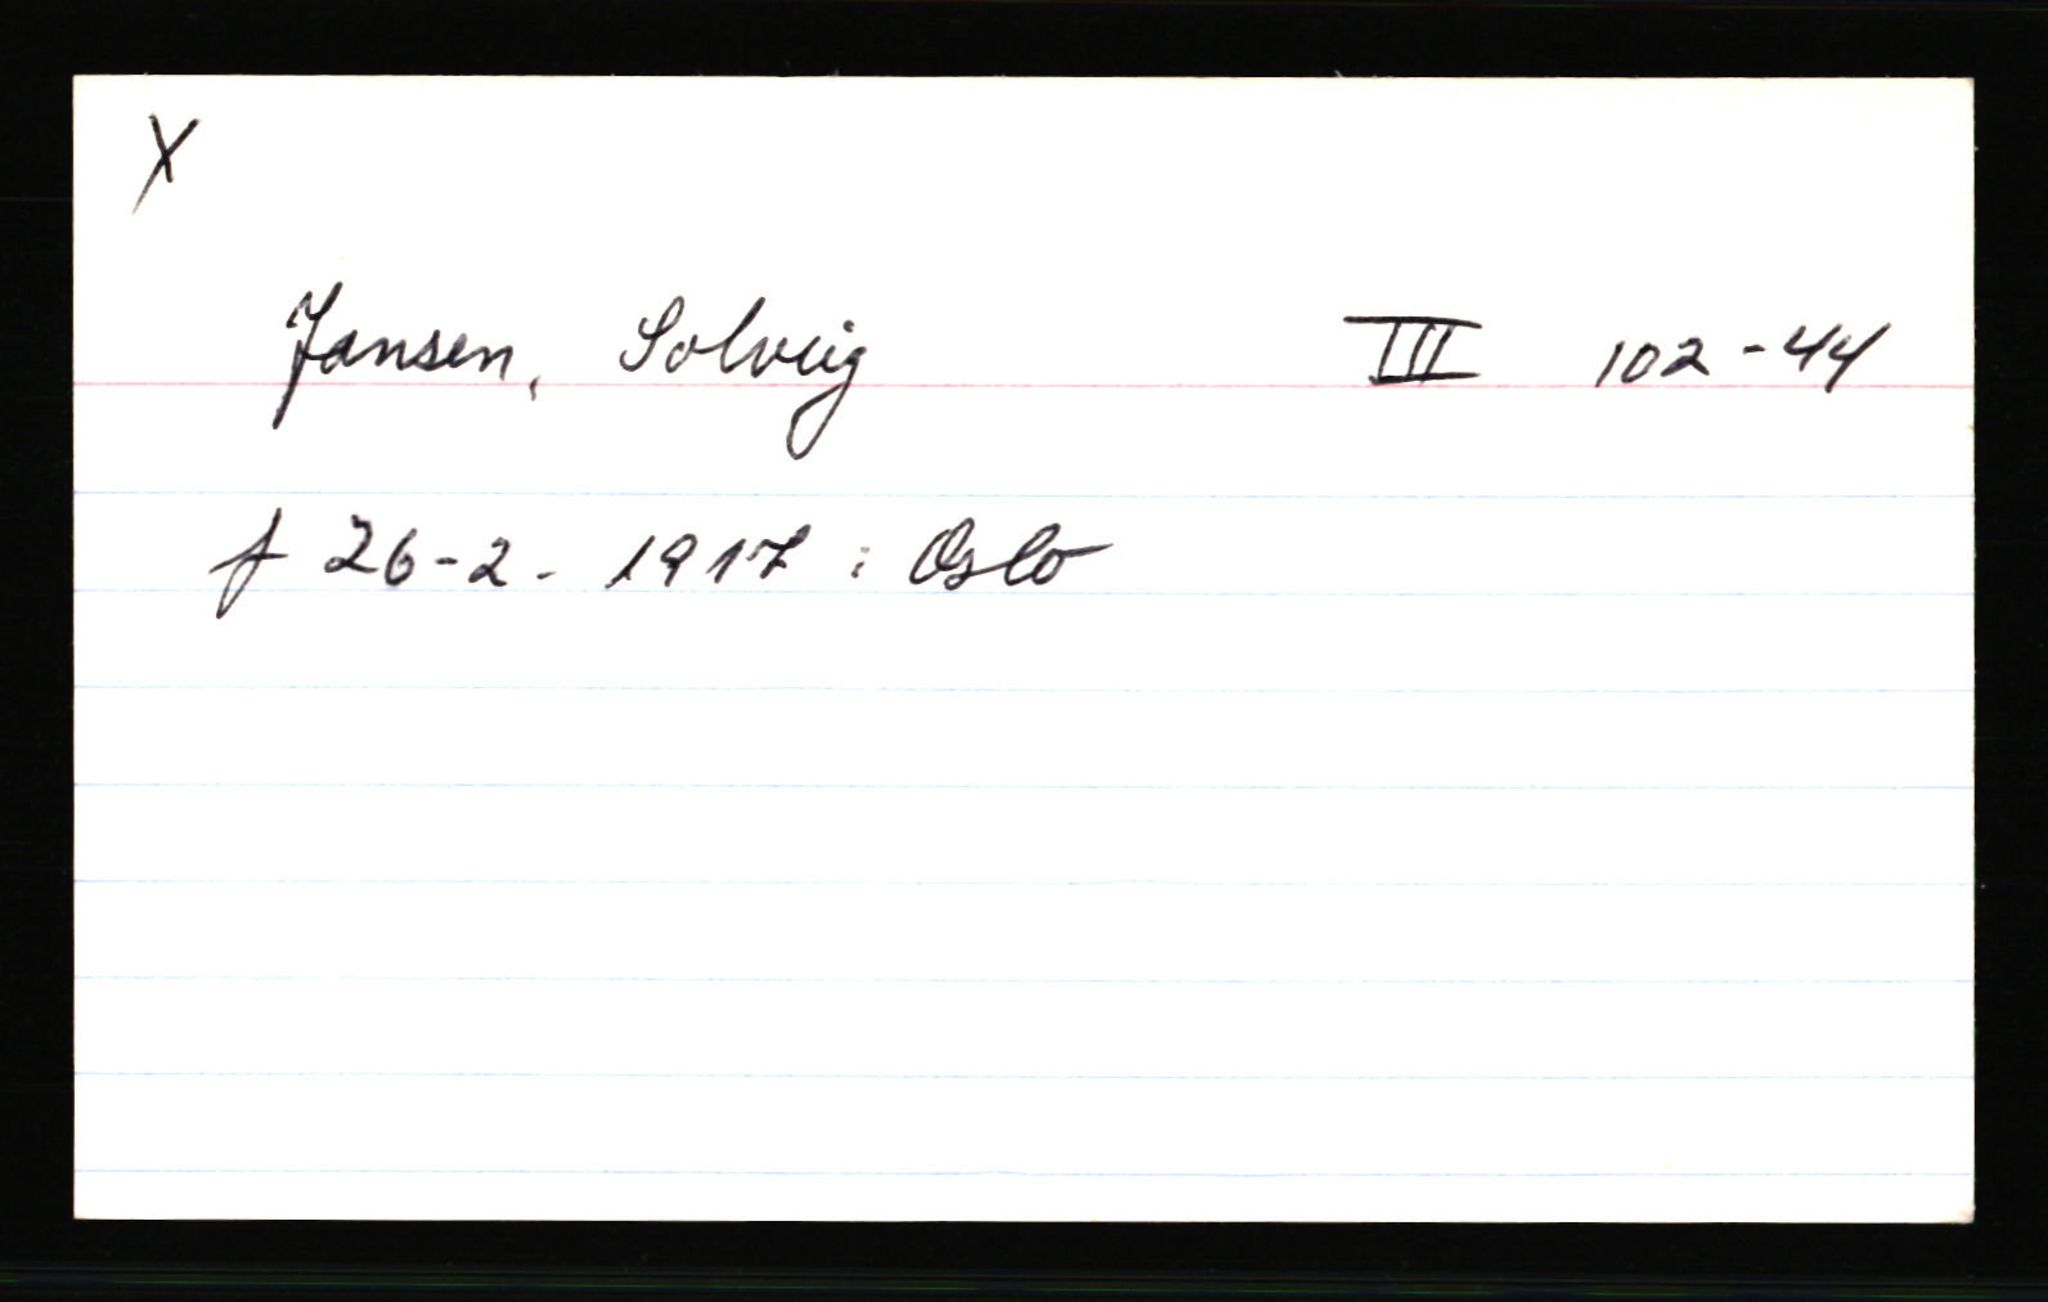 X
Jansen, Solveig III 102-44
f 26-2-1917 i Oslo